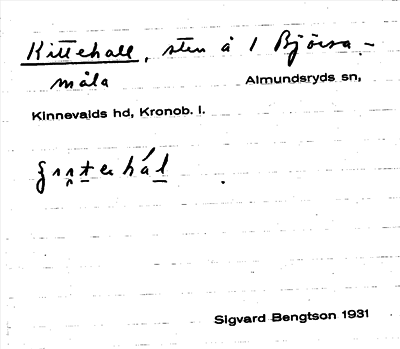 Kittehall, sten å 1 Björsa-
måla Almundsryds sn,
Kinnevalds hd, Kronob. l.
Sigvard Bengtson 1931